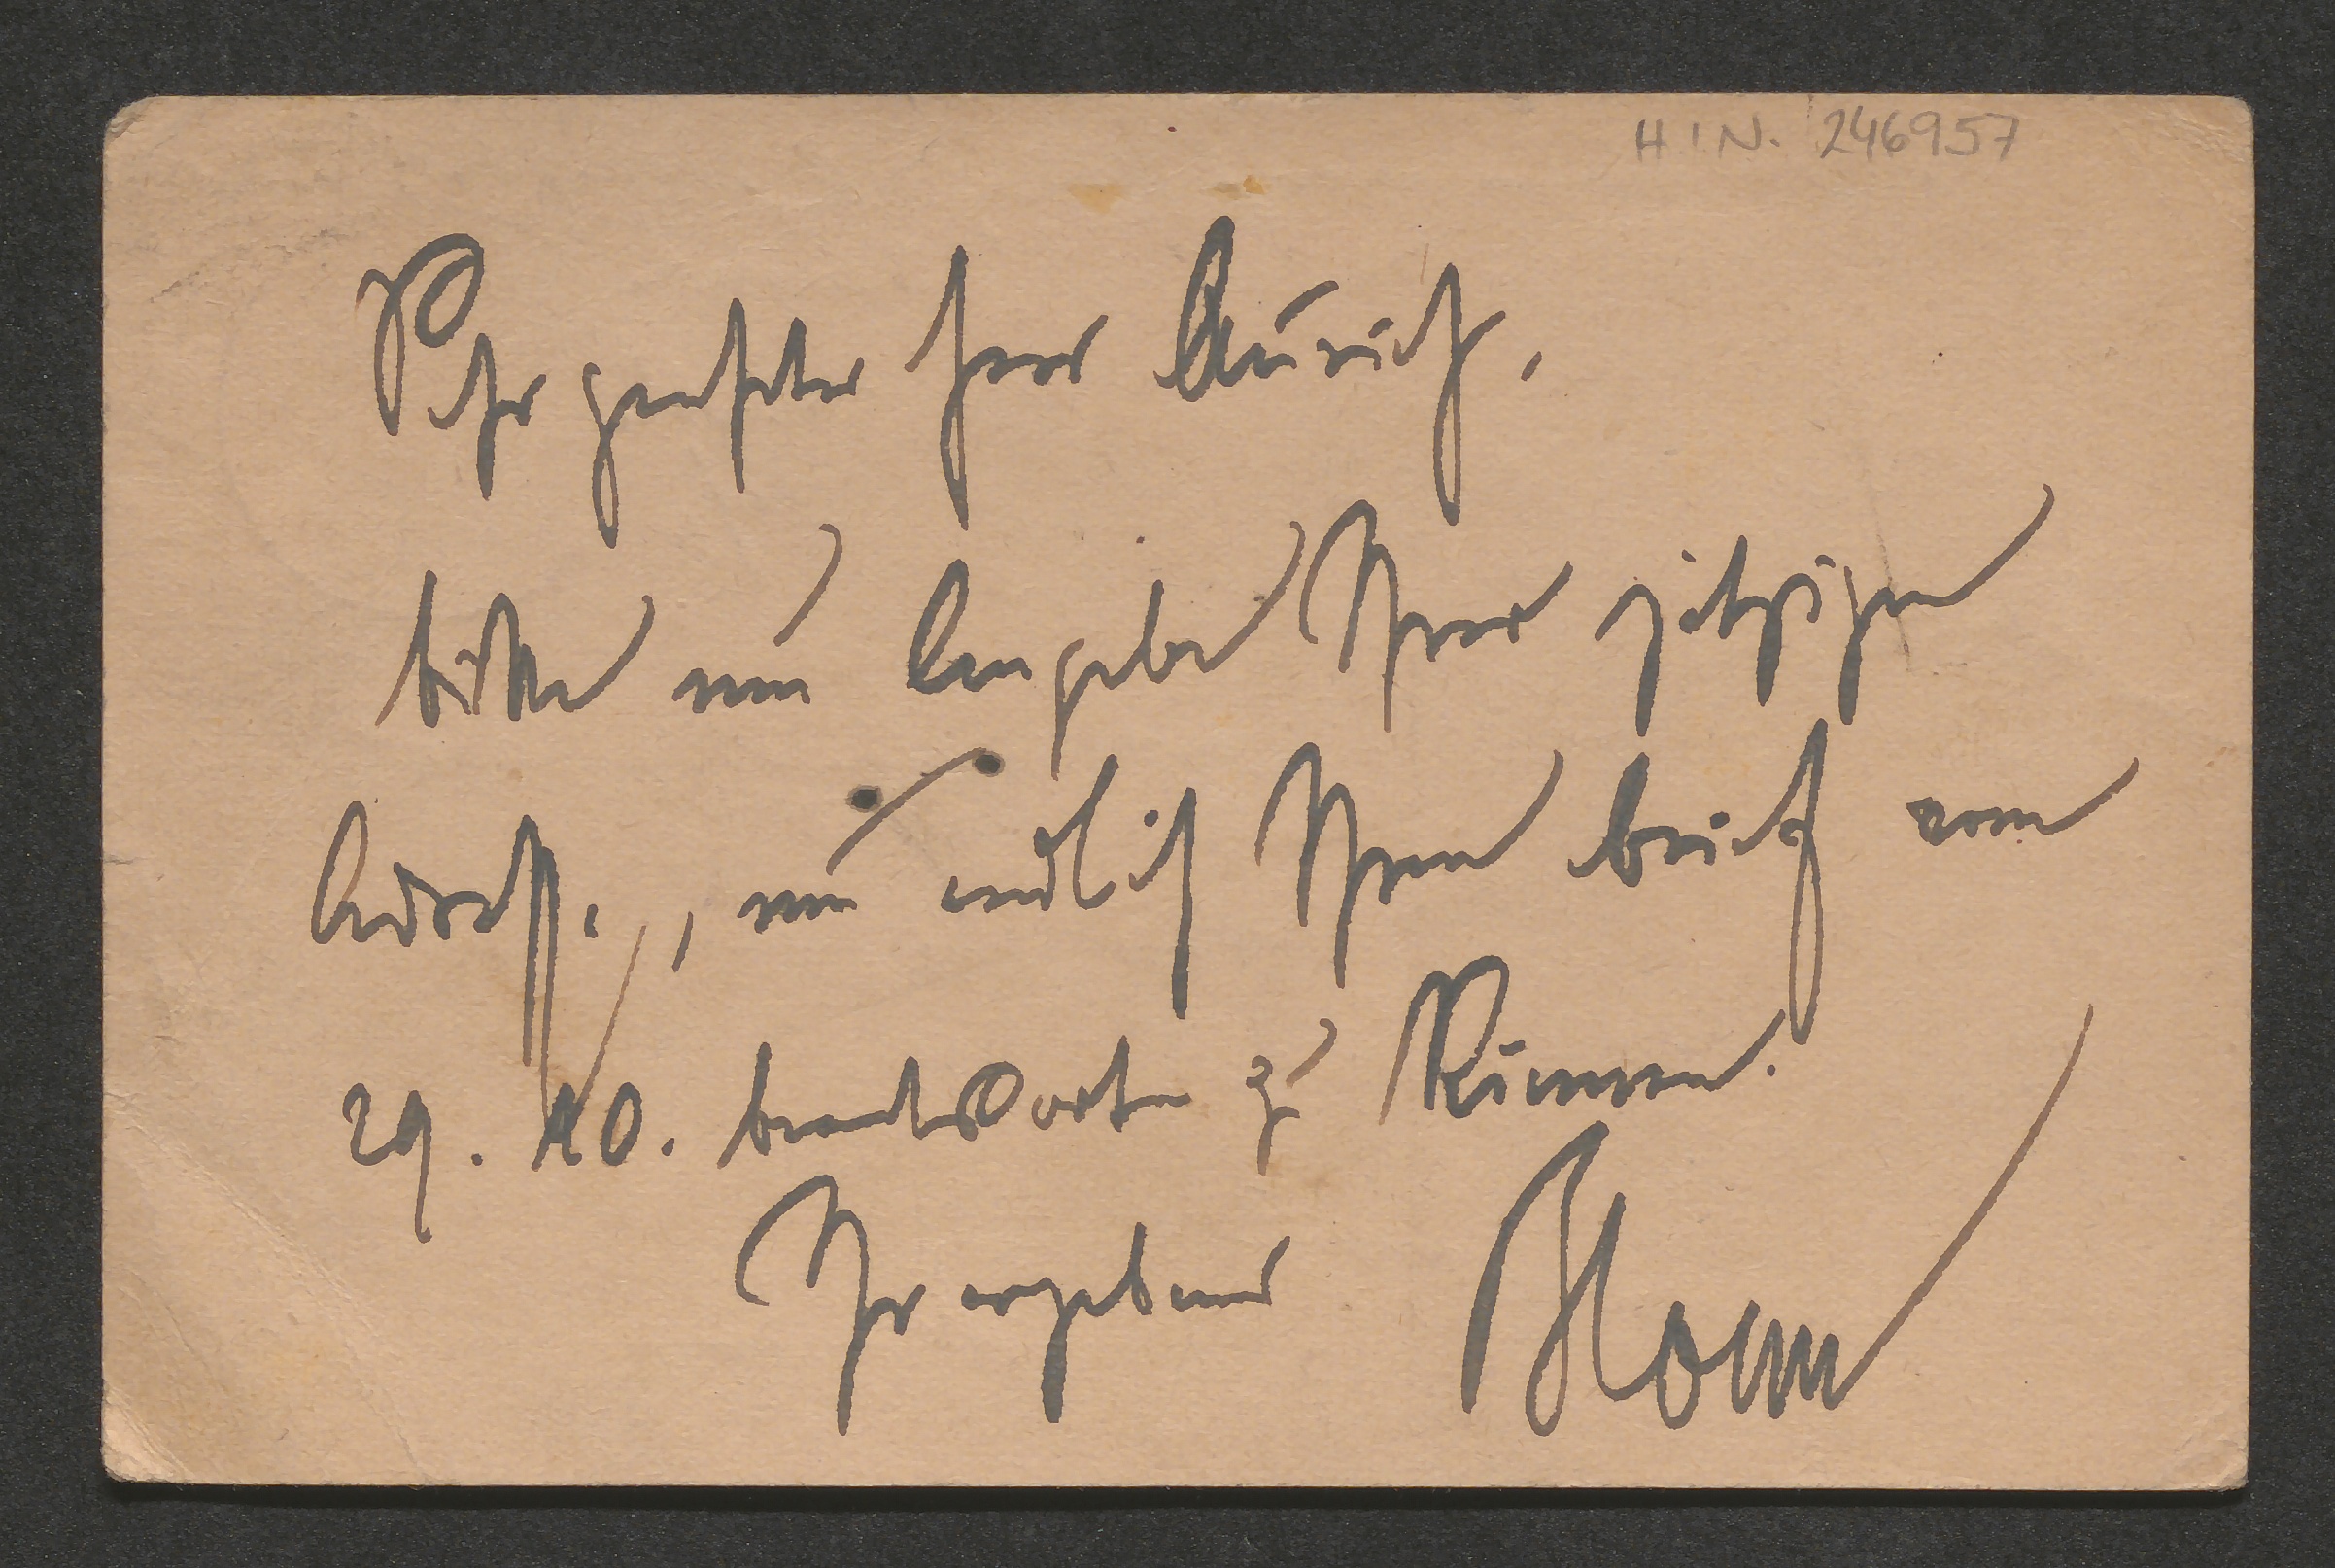 H.I.N. 246957
Sehr geehrter Herr Aurich,
bitte um Angabe Ihrer jetzigen
Adresse, um endlich Ihren Brief vom
29. 10. beantworten zu können.
Ihr ergebener Bloem